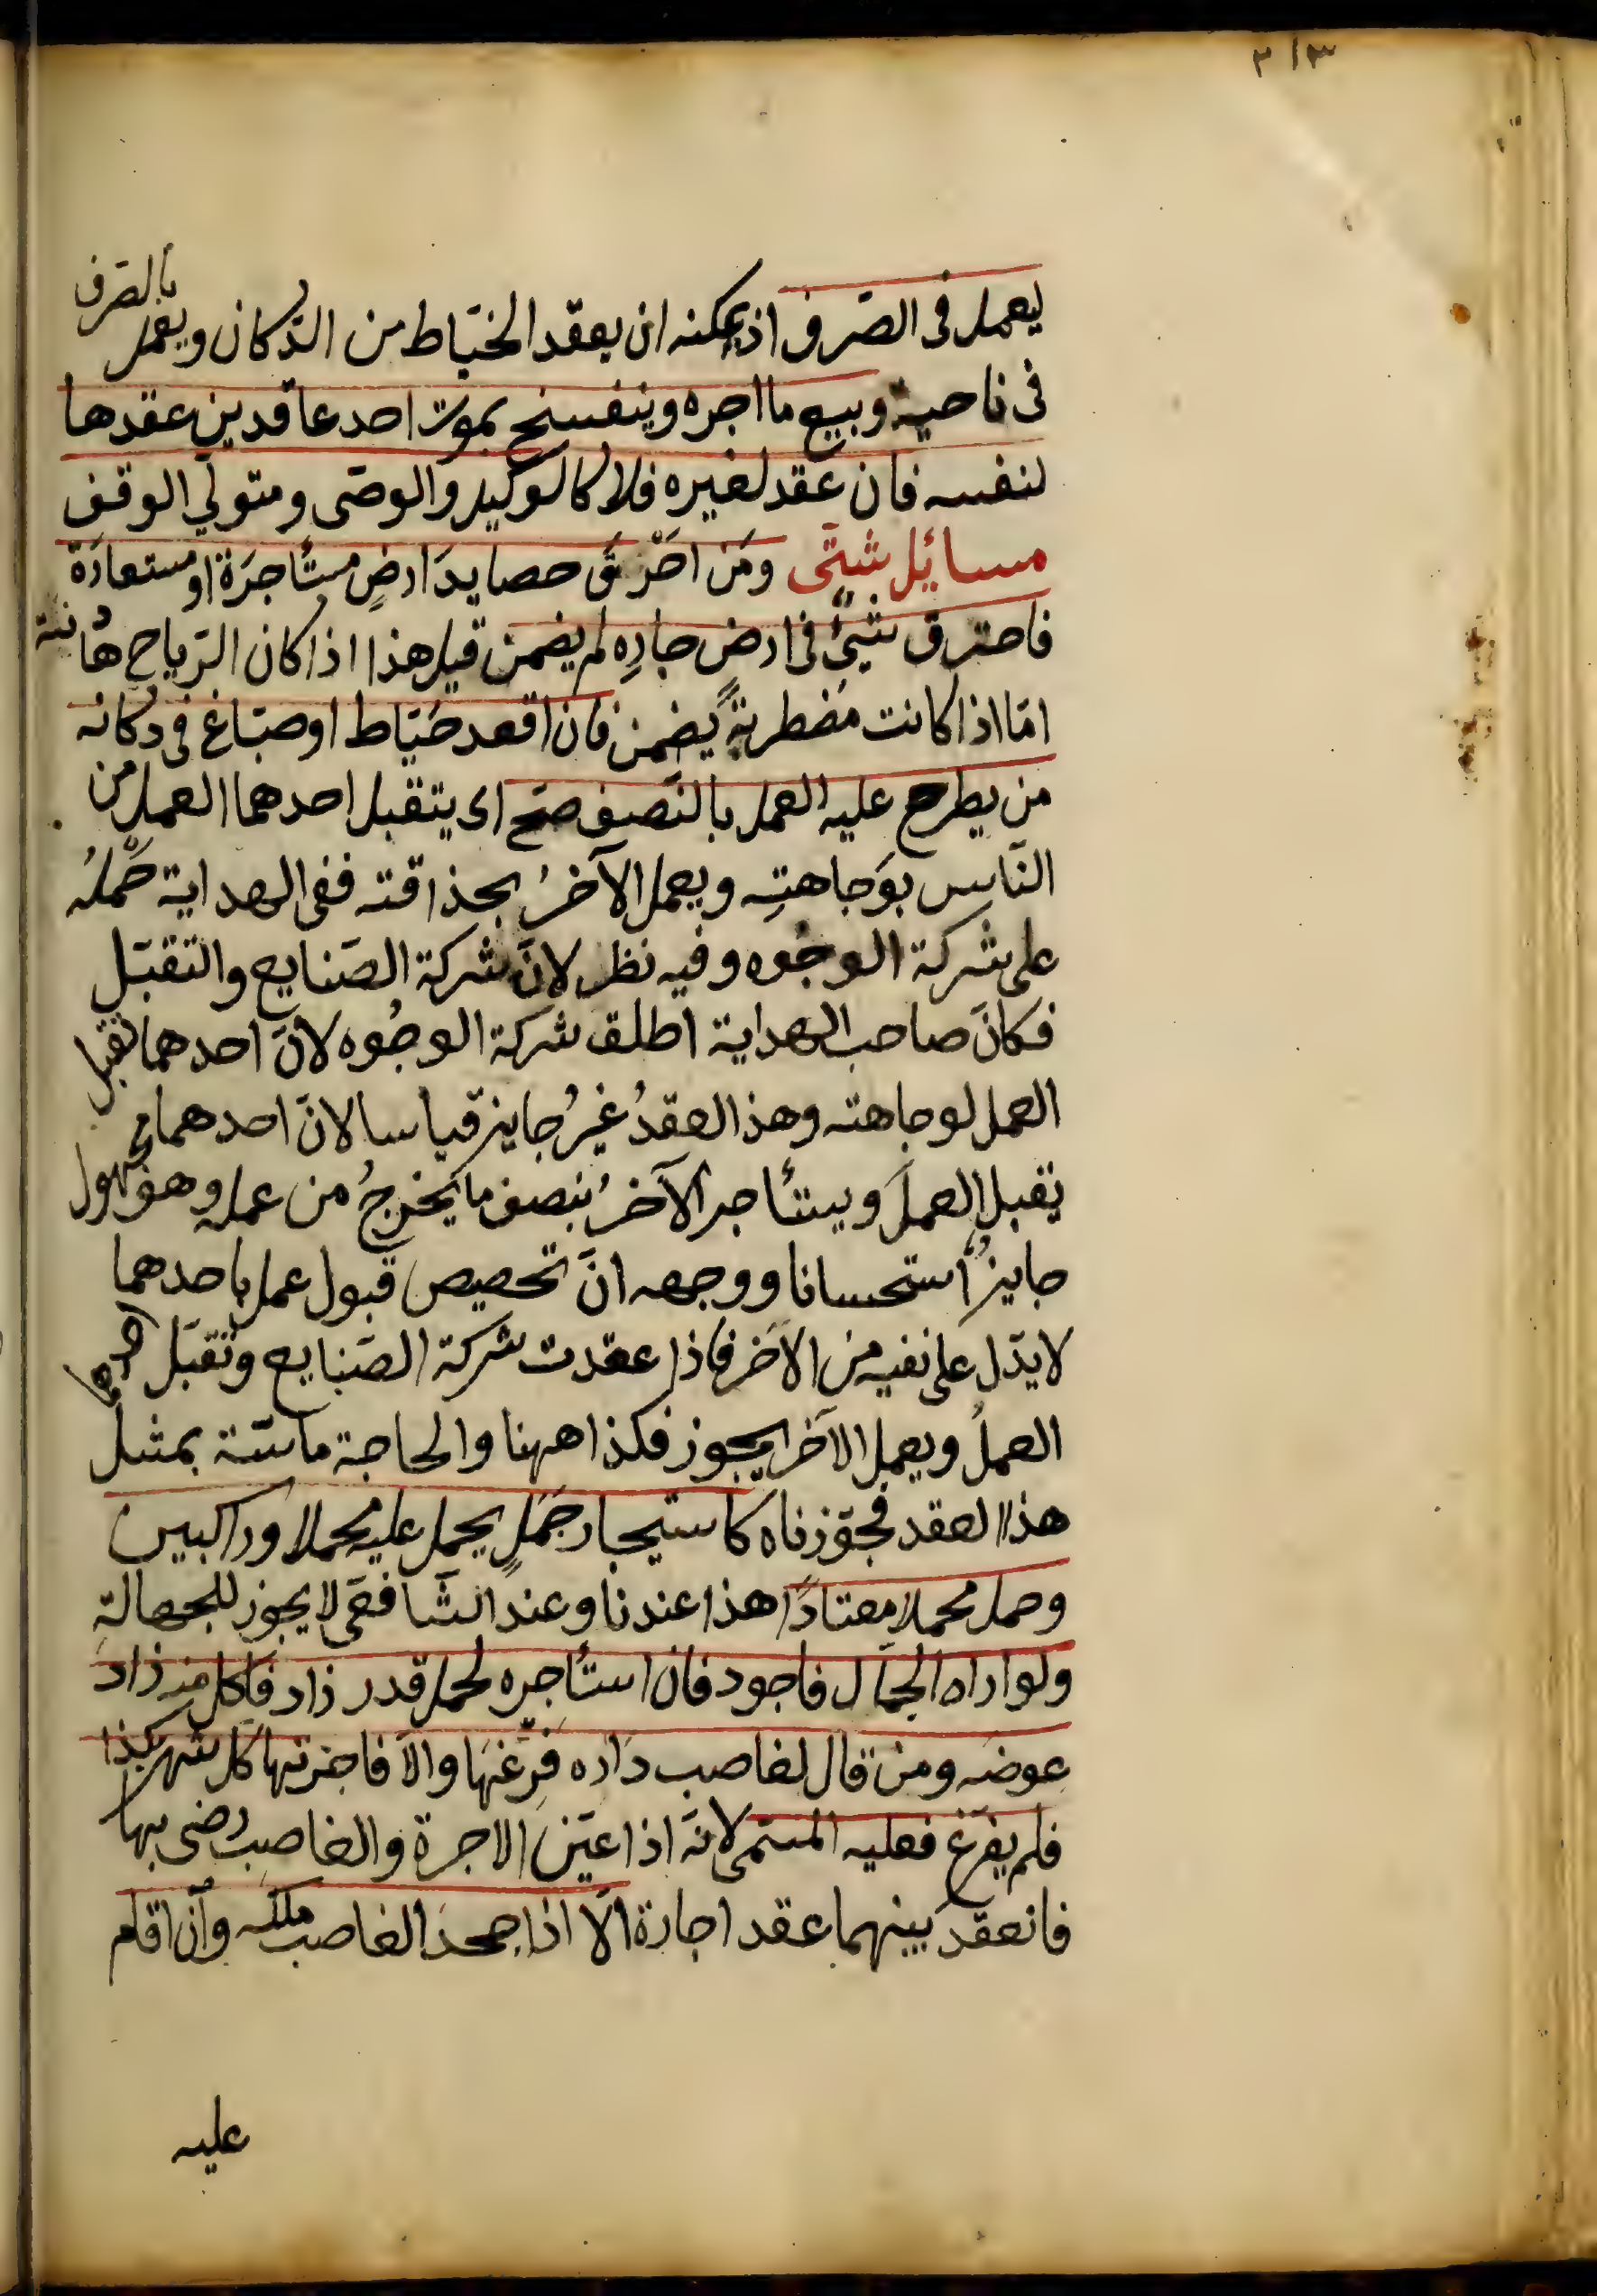 ٣١٣
ليعمل فى الصّرف اذ يمكنه ان يعقد الخيّاط من الدّكان ويعمل بالصّرف
فى ناحية وبيع ما اجره وينفسخ بموت احد عاقدين عقدها
لنفسه فان عقد لغيره فلا كالوكيل والوصّى ومتولّي الوقف
مسائل شتّى ومَن احْرَقَ حصايدَ ارضٍ مستأجرَة او مستعارَة
فاحترق شيئٌ فى ارض جارِه لم يضمن قيل هذا اذا كان الرّياح هانئة
امّا اذا كانت مضطربةً يضمن فان اقعد خيّاط او صبّاغ فى دكانه
من يطرح عليه العمل بالنّصف صحّ اى يتقبل احدهما العمل من
النّاس بوَجاهتِه ويعمل الآخرُ بحذاقته ففى الهداية حْمَلُه
على شركة الوجُوه وفيه نظر لانّ شركة الصّنايع والتّقبّل
فكانّ صاحب الهداية اطلق شركة الوجُوه لانّ احدهما تقبل
العمل لوجاهته وهذ العقدُ غيرُ جايز قياسا لانّ احدهما
يقبل العملَ ويستأجر الآخرُ بنصف ما يخرجُ من عمله وهو مجهول
جايزٌ استحسانا ووجهه انّ تحصيص قبول عمل باحدهما
لا يدّل على نفيه من الآخر فاذا عقدت شركة الصّنايع وتقبّل احدهما
العملُ ويعمل الآخر يجوز فكذا ههنا والحاجة ماسّة بمثل
هذا العقد فجوّزناه كاستيجار جَمَلٍ يحمل عليه محملا وراكبين
وحمل محملا معتادًا هذا عندنا وعند الشّافعّى لا يجوز للجهالةِ
ولو اراه الجمّال فاجود فان استأجره لحمل قدر زاد فاكل منه زاد
عوضه ومن قال لغاصب دَاره فرّغهَا والّا فاجرتها كل شهر بكذا
فلم يفرّغ فعليه المسّمى لانّه اذا عيّن الاجرة والغاصب رضى بها
فانعقد بينهما عقد اجارة الّا اذا جحد الغاصب ملكه وان اقام
عليه